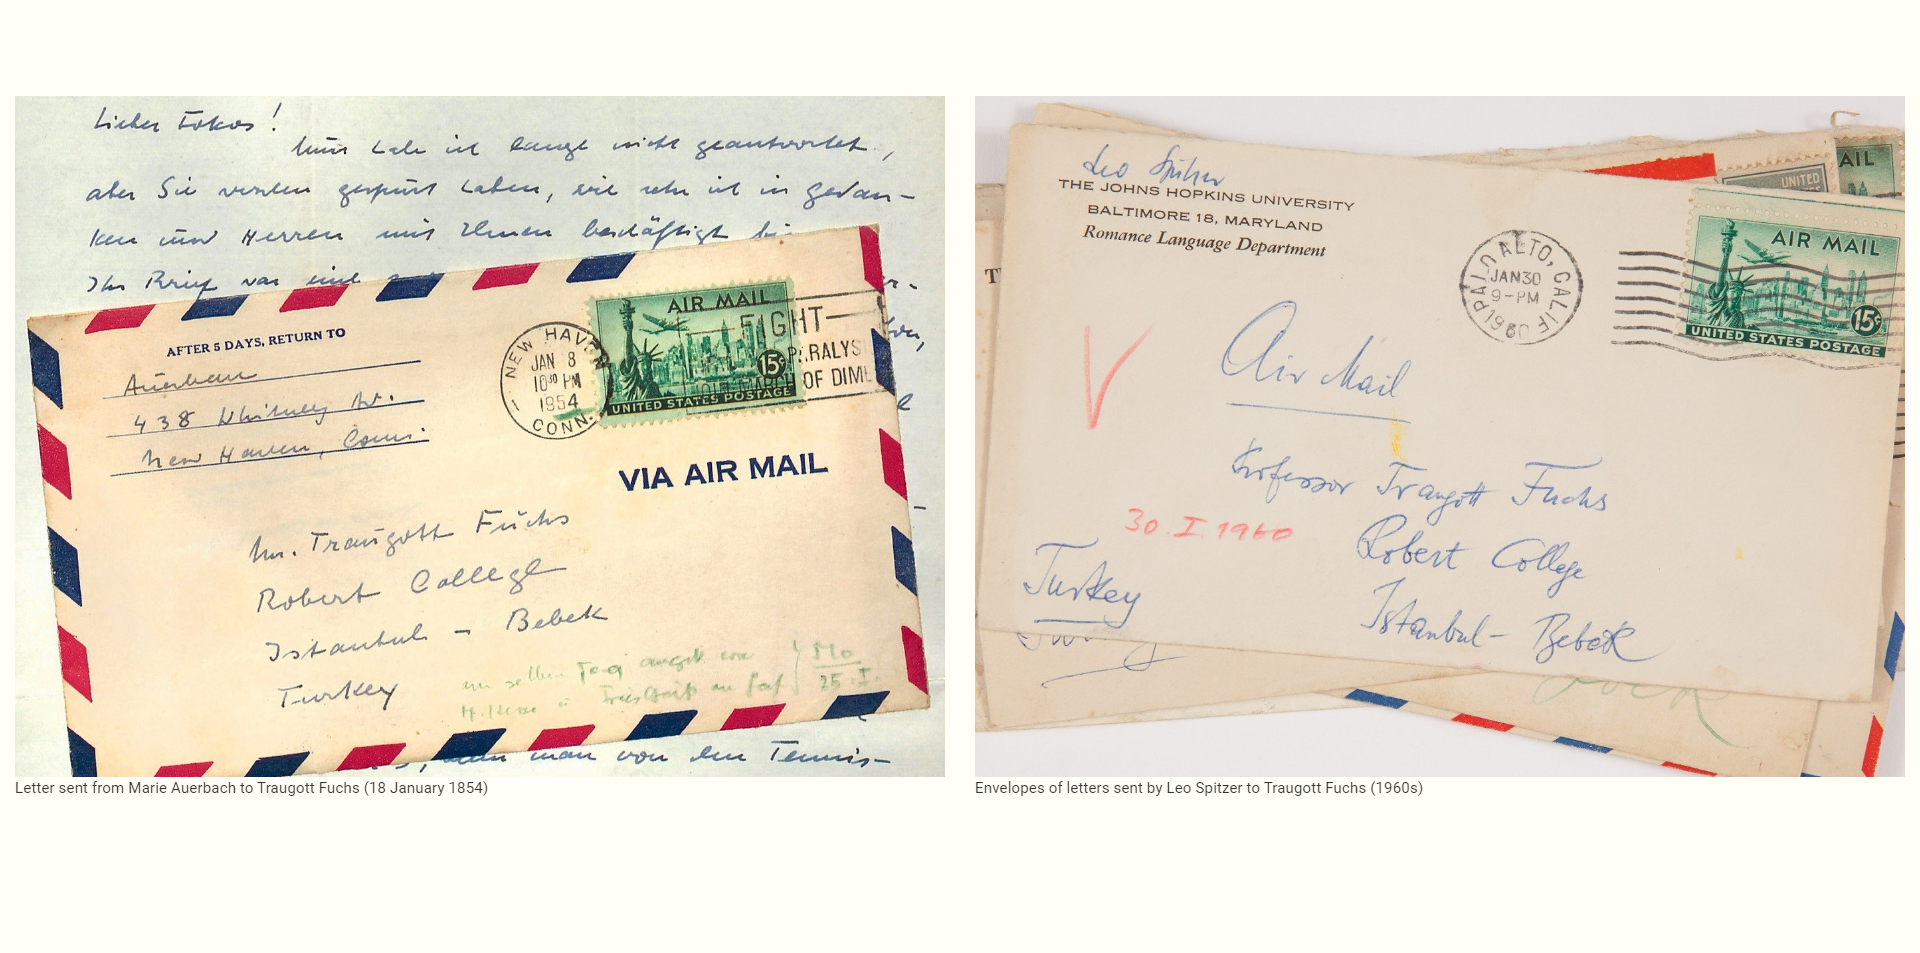 Lieber Fokos!
Nun habe ich lange nicht geantwortet,
aber Sie werden gespürt haben, wie sehr ich in Gedan-
ken und Herzen mit Ihnen beschäftigt bin
Ihr Brief war eine
AFTER 5 DAYS, RETURN TO
Auerbach
438 Whitney Av.
New Haven, Conn.
NEW HAVEN
JAN 8
10³⁰ PM
1954
CONN.
AIR MAIL
15¢
UNITED STATES POSTAGE
FIGHT
PARALYS
MARCH OF DIME
VIA AIR MAIL
Mr. Traugott Fuchs
Robert College
Istanbul - Bebek
Turkey
am selben Tag
Mo
25.I.
man von den Tennis-
Letter sent from Marie Auerbach to Traugott Fuchs (18 January 1854)
Leo Spitzer
THE JOHNS HOPKINS UNIVERSITY
BALTIMORE 18, MARYLAND
Romance Language Department
PALO ALTO, CALIF
JAN 30
9-PM
1960
AIR MAIL
15¢
UNITED STATES POSTAGE
AIL
UNITED
T
Air Mail
Professor Traugott Fuchs
30.I.1960
Robert College
Turkey
Istanbul - Bebek
Envelopes of letters sent by Leo Spitzer to Traugott Fuchs (1960s)